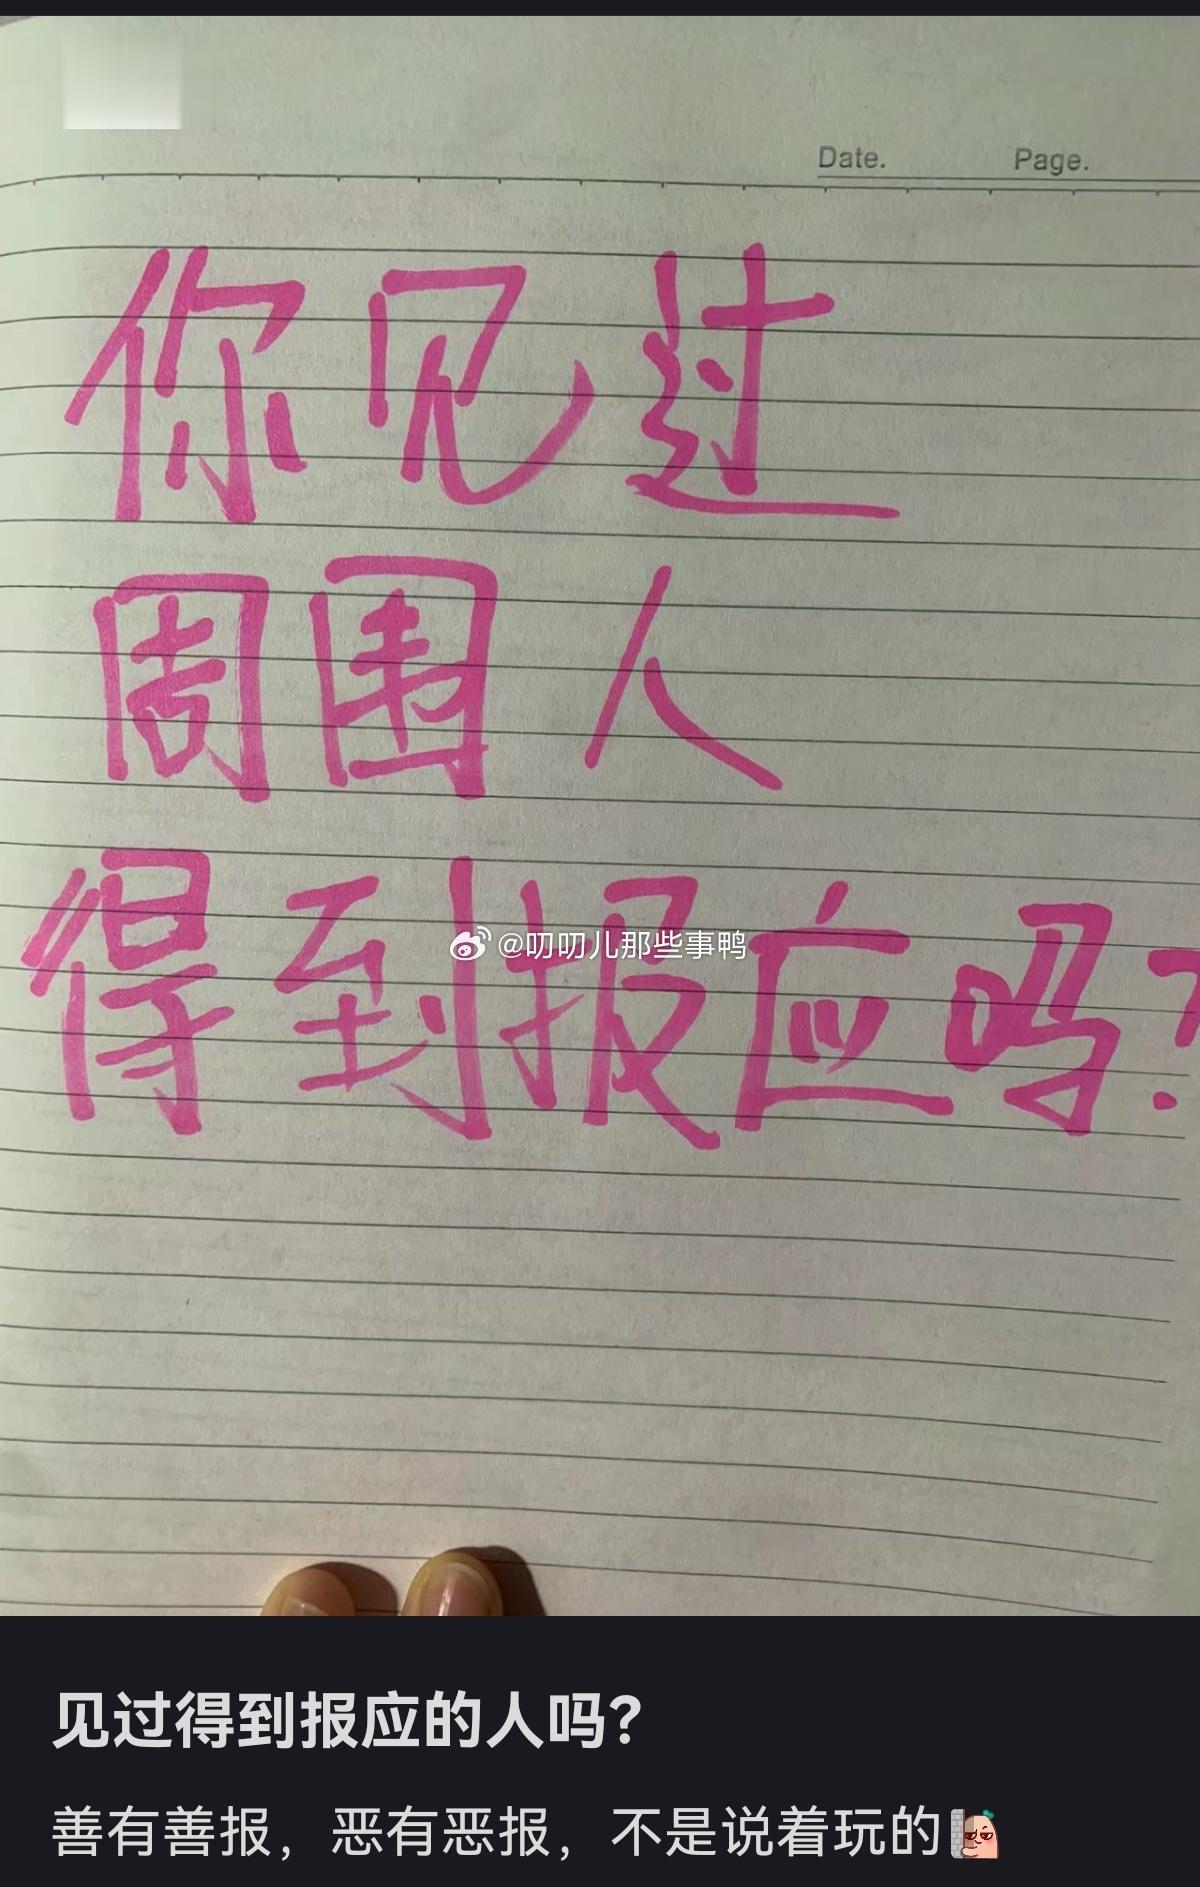 Date. Page.
你见过
周围人
得到报应吗?
@叨叨儿那些事鸭
见过得到报应的人吗？
善有善报，恶有恶报，不是说着玩的